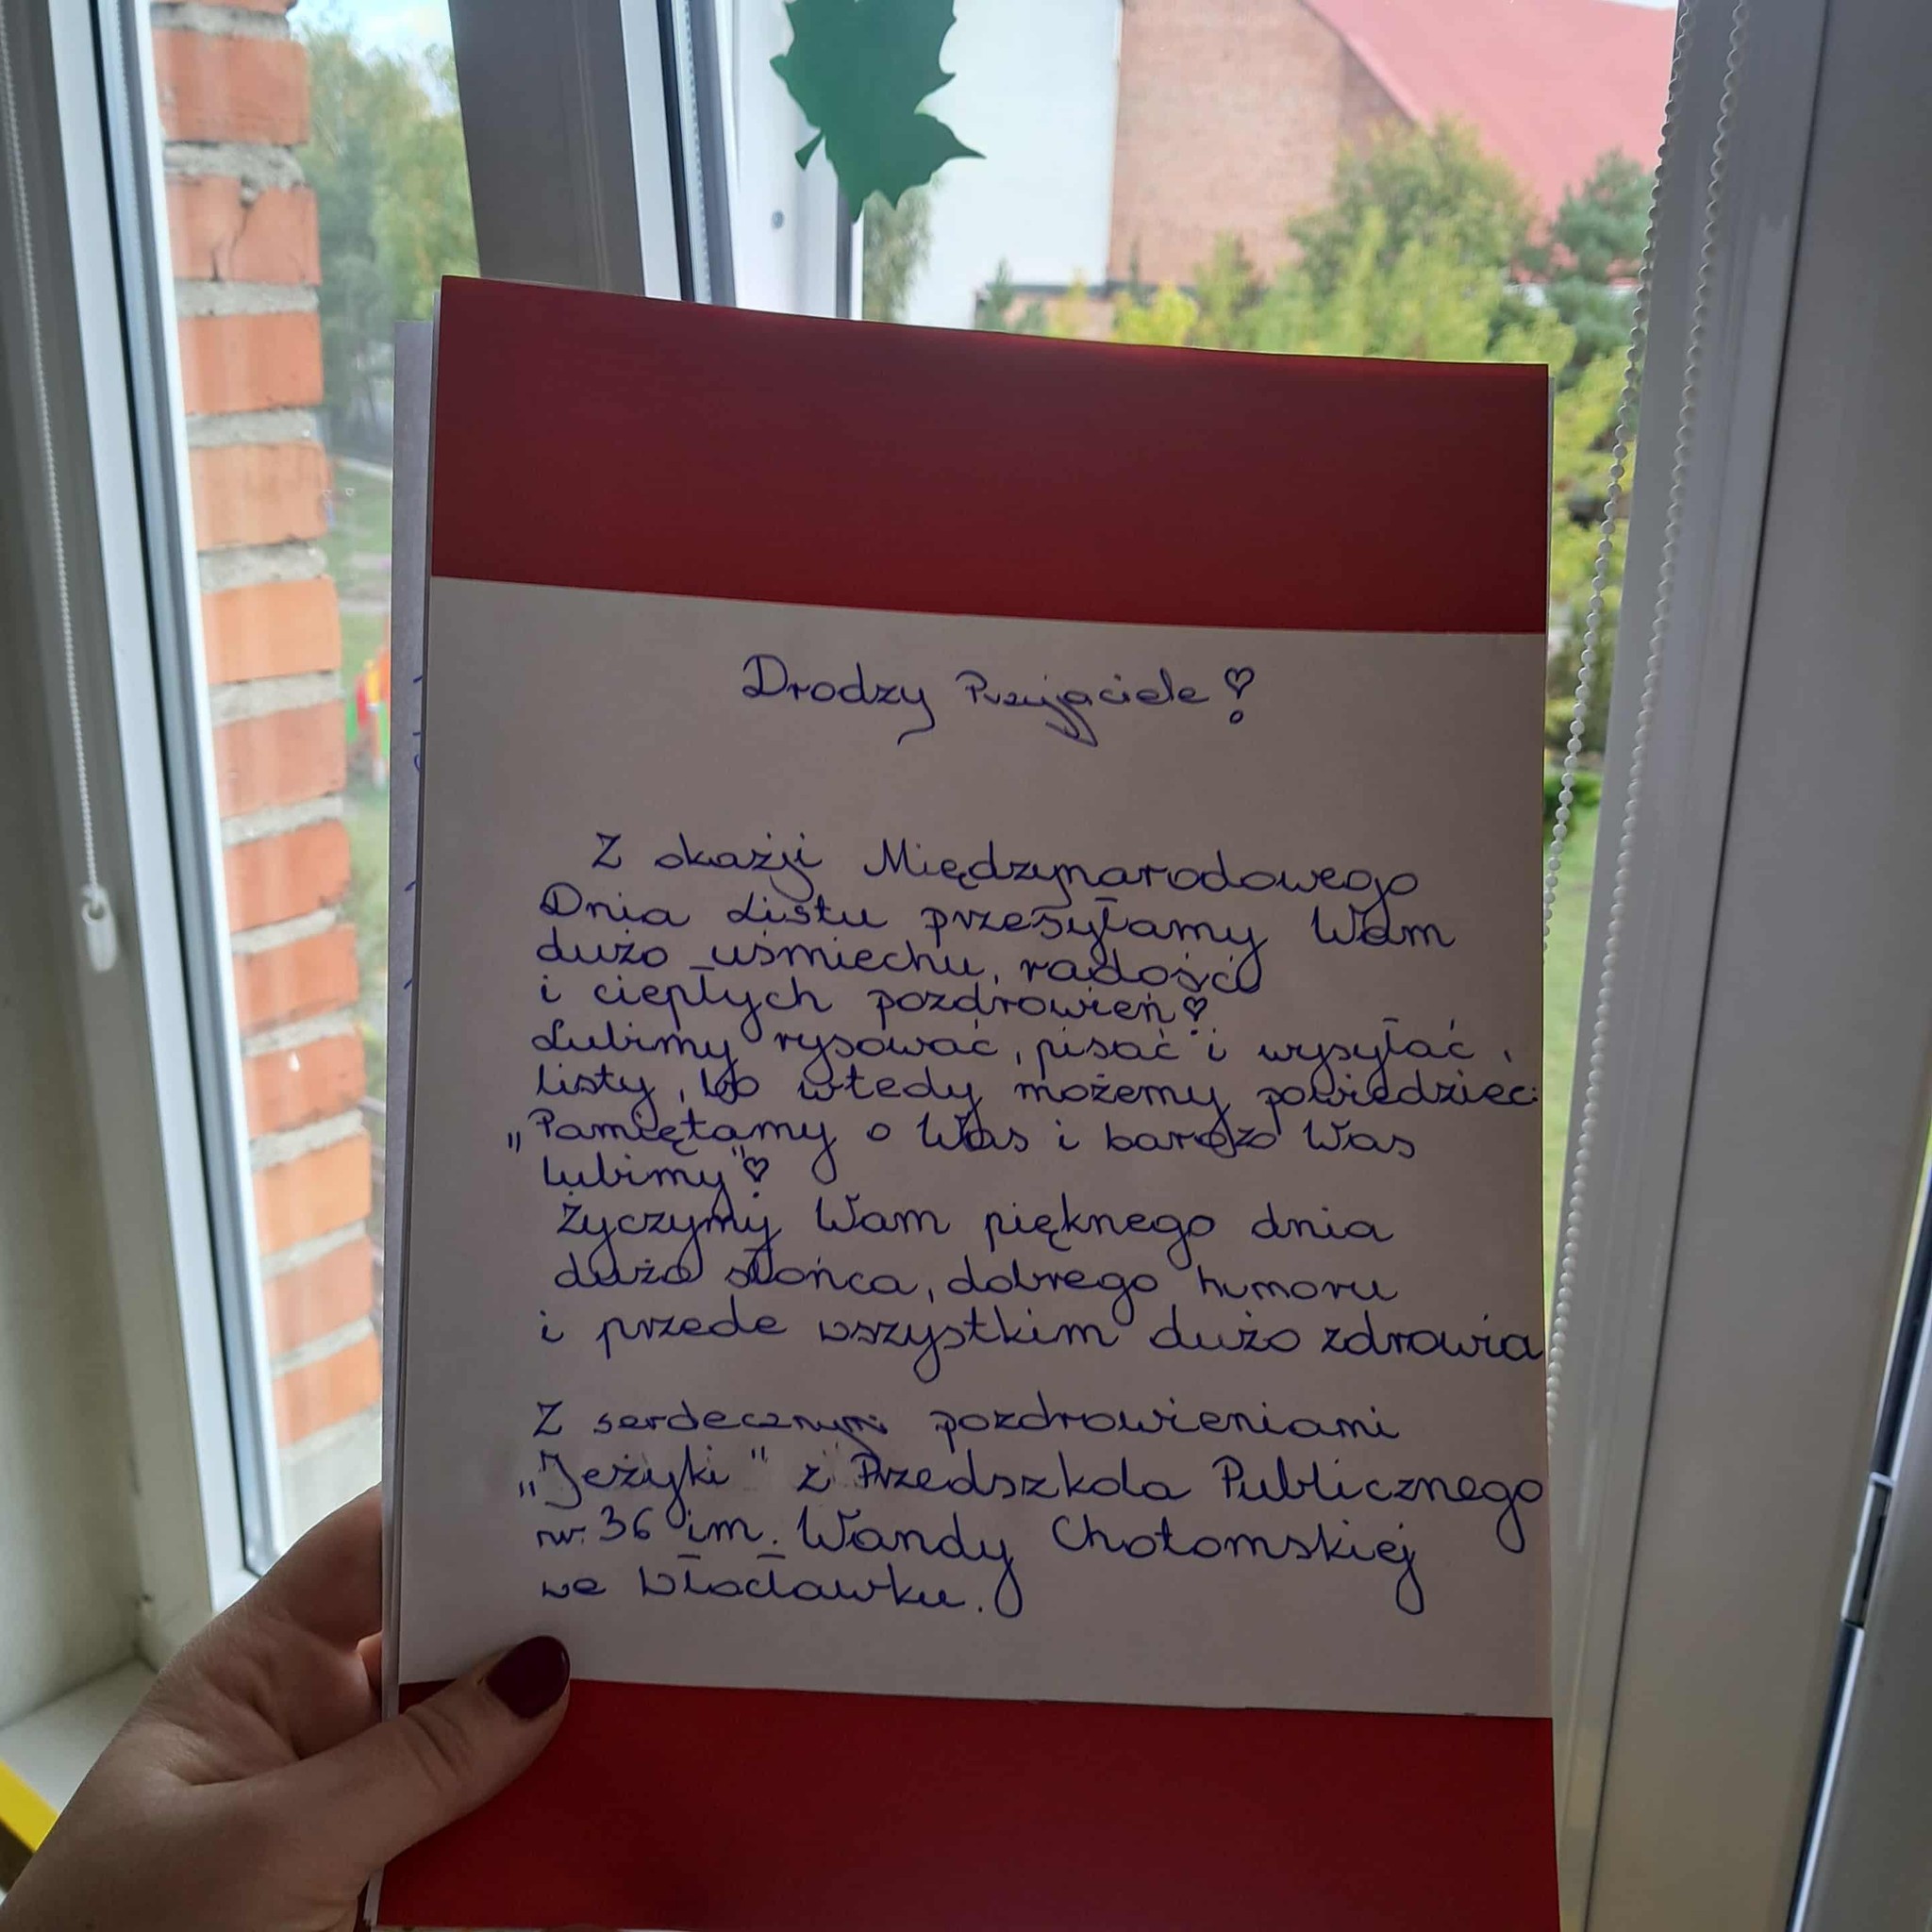 Drodzy Przyjaciele!
Z okazji Międzynarodowego
Dnia Listu przesyłamy Wam
dużo uśmiechu, radości
i ciepłych pozdrowień!
Lubimy rysować, pisać i wysyłać
listy, bo wtedy możemy powiedzieć:
„Pamiętamy o Was i bardzo Was
lubimy"!
Życzymy Wam pięknego dnia
dużo słońca, dobrego humoru
i przede wszystkim dużo zdrowia
Z serdecznymi pozdrowieniami
„Jeżyki" z Przedszkola Publicznego
nr. 36 im. Wandy Chotomskiej
we Włocławku.